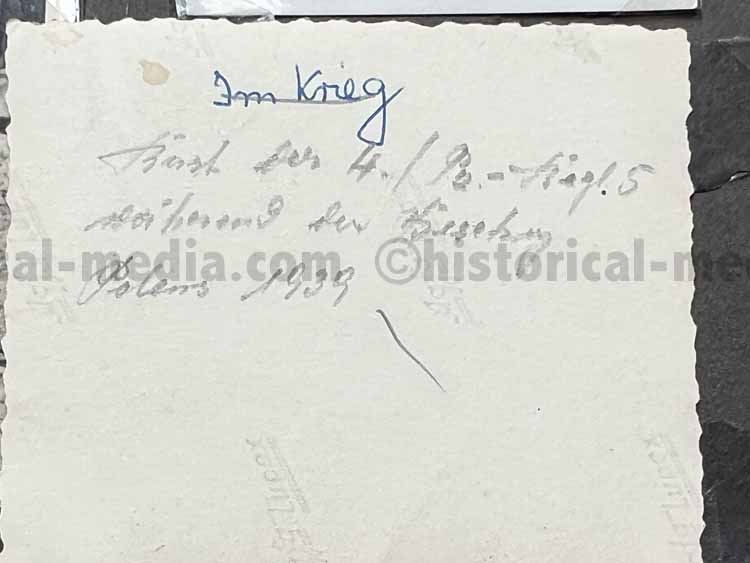 Im Krieg
Rast der 4./Pz.-Regt. 5
während der Besetzung
Polens 1939
al-media.com ©historical-me